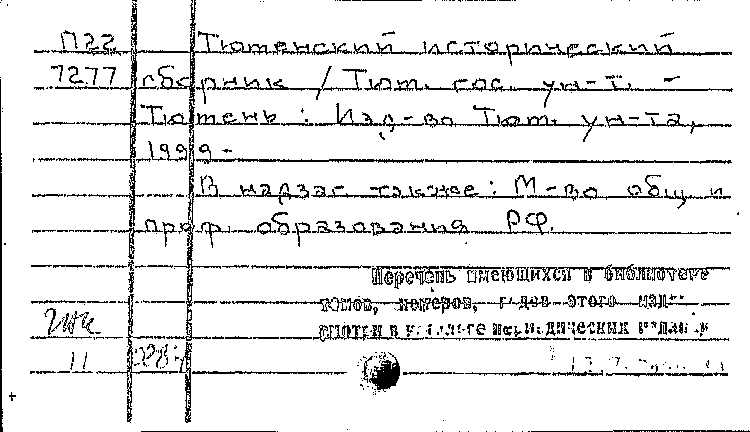 П22 Тюменский исторический
7277 сборник / Тюм. гос. ун-т. -
Тюмень : Изд-во Тюм. ун-та,
1999 -
В надзаг. также: М-во общ. и
проф. образования РФ.
Перечень имеющихся в библиотеке
томов, номеров, годов этого изда-
в каталоге периодических издан
11